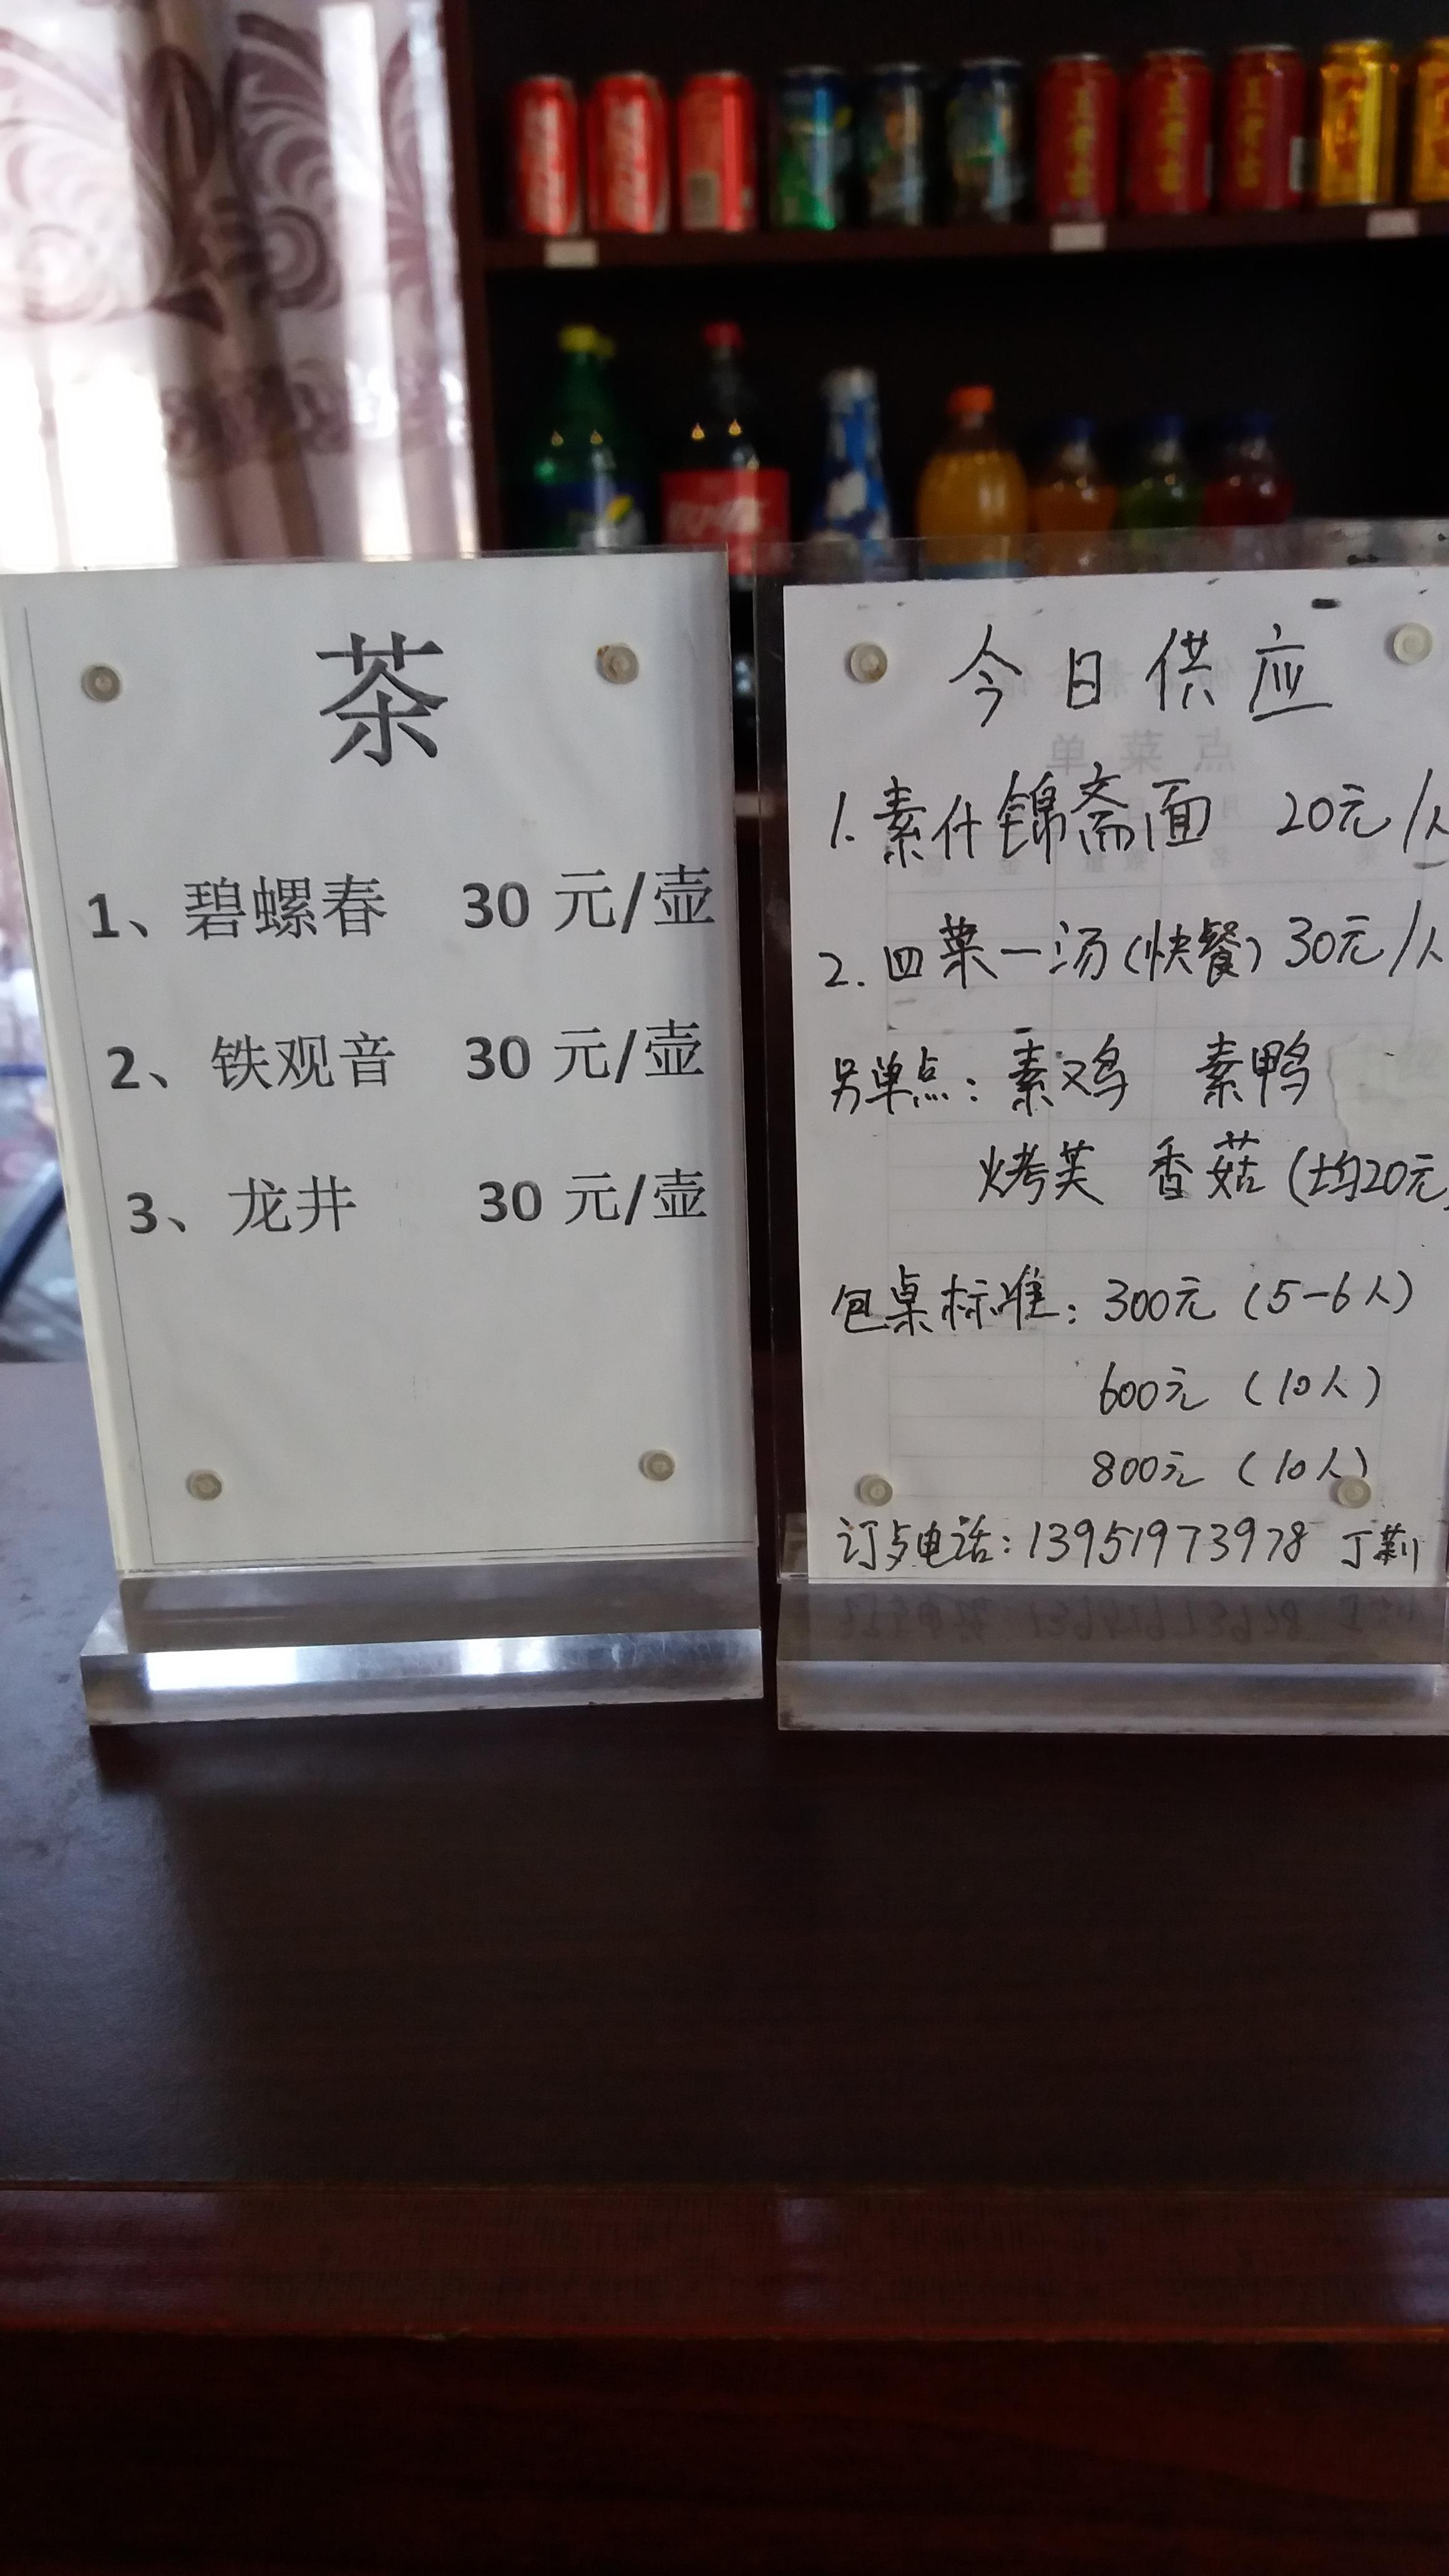 茶
1、碧螺春 30 元/壶
2、铁观音 30 元/壶
3、龙井 30 元/壶
今日供应
1. 素什锦斋面 20元/人
2. 四菜一汤(快餐) 30元/人
另单点: 素鸡 素鸭
烤芙 香菇 (均20元)
包桌标准: 300元 (5-6人)
600元 (10人)
800元 (10人)
订与电话: 13951973978 丁莉
点菜单